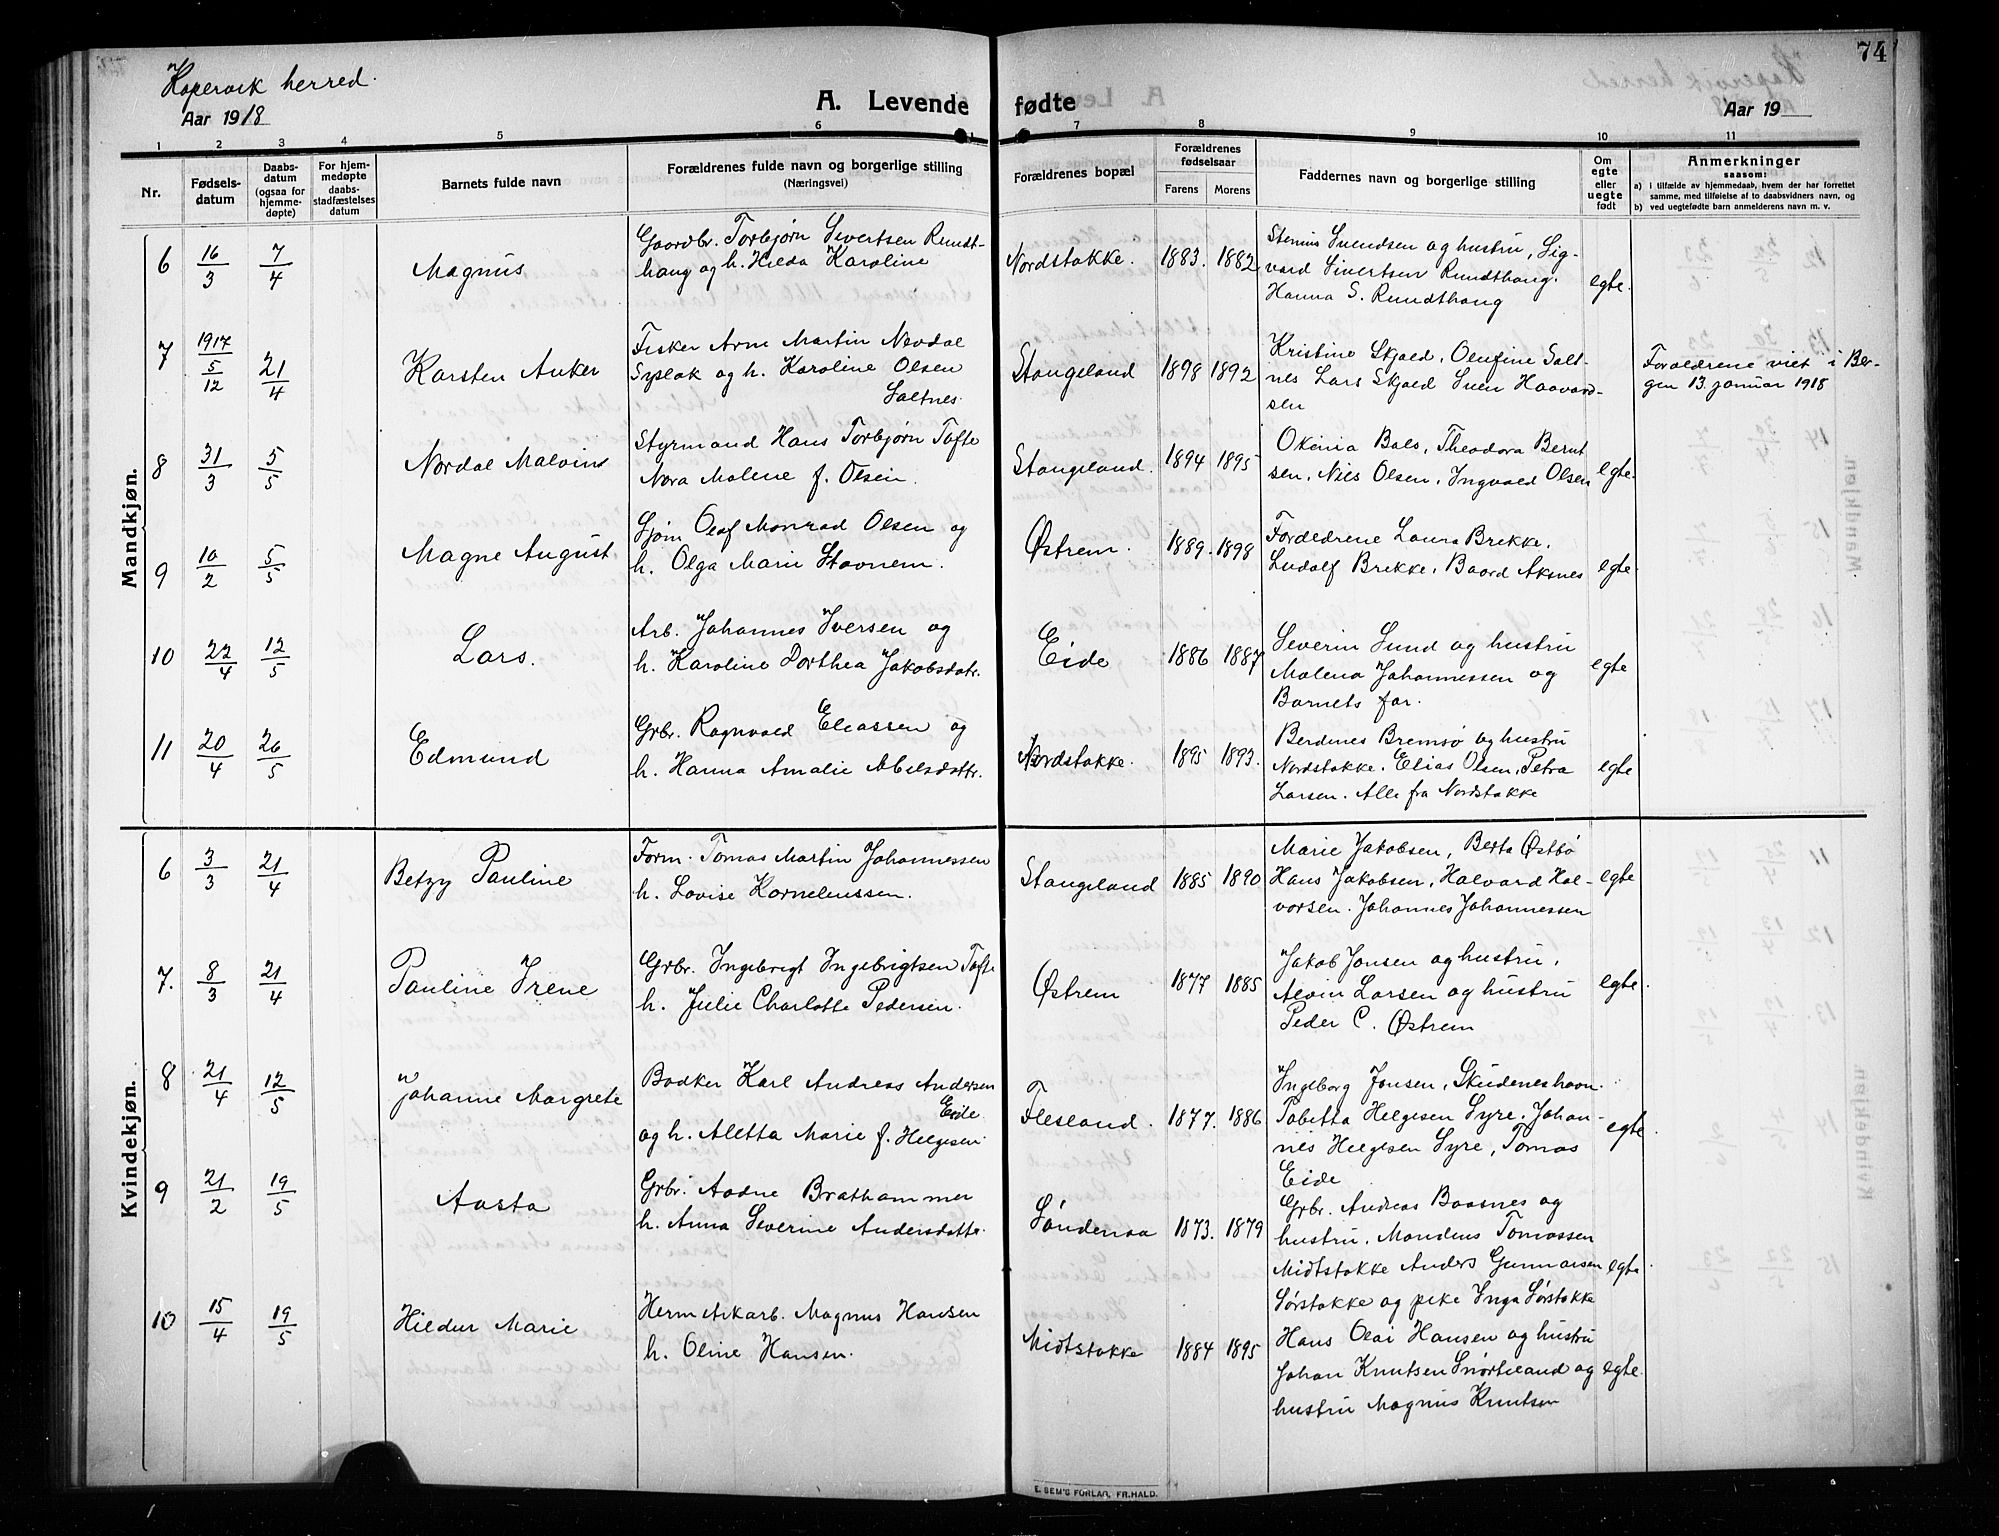 Kopervik herred.
Aar 1918
A. Levende fødte
74
Aar 19
1 2 3 4 5 6 7 8 9 10 11
Nr.
Fødsels-
datum
Daabs-
datum
(ogsaa for
hjemme-
døpte)
For hjem-
medøpte
daabs-
stadfæstelses
datum
Barnets fulde navn
Forældrenes fulde navn og borgerlige stilling
(Næringsvei)
Forældrenes bopæl
Forældrenes
fødselsaar
Farens Morens
Faddernes navn og borgerlige stilling
Om
egte
eller
uegte
født
Anmerkninger
saasom:
a) i tilfælde av hjemmedaab, hvem der har forrettet
samme, med tilføielse af to daabsvidners navn, og
b) ved uegtefødte barn anmelderens navn m. v.
Mandkjøn.
6 16/3 7/4 Magnus
Gaardbr. Torbjørn Sivertsen Rundt-
haug og h. Hilda Karoline
Nordstokke. 1883. 1882
Stenius Svendsen og hustru, Sig-
vard Sivertsen Rundthaug.
Hanna S. Rundthaug
egte.
7 1917 5/12 21/4 Karsten Anker
Fisker Arne Martin Nevdal
Syslak og h. Karoline Olsen
Saltnes.
Stangeland 1898 1892
Kristine Skjold, Olufine Salt-
nes Lars Skjold Sven Haavard-
sen
Forældrene viet i Ber-
gen 13. januar 1918
8 31/3 5/5 Nordal Malvin
Styrmand Hans Torbjørn Tofte
Nora Malene f. Olsen.
Stangeland. 1894 1895
Okenia Bals, Theodora Bernt
sen, Nils Olsen, Ingvald Olsen
egte.
9 10/2 5/5 Magne August
Sjøm Olaf Monrad Olsen og
h. Olga Marie Stovnem.
Østrem. 1889. 1898
Forældrene Laura Brekke.
Ludolf Brekke, Baard Aksnes
egte.
10 22/4 12/5 Lars.
Arb. Johannes Iversen og
h. Karoline Dorthea Jakobsdatr.
Eide 1886 1887
Severin Lund og hustru
Malena Johannessen og
Barnets far.
egte
11 20/4 26/5 Edmund
Grbr. Ragnvald Eliassen og
h. Hanna Amalie Abelsdattr.
Nordstokke. 1895 1893.
Berdenes Bremsø og hustru
Nordstokke. Elias Olsen, Petra
Larsen. Alle fra Nordstokke
egte
Kvindekjøn.
6 3/3 21/4 Betzy Pauline
Form. Tomas Martin Johannessen
h. Lovise Korneliussen.
Stangeland 1885 1890
Marie Jakobsen, Berta Østbø
Hans Jakobsen, Halvard Hal-
vorsen. Johannes Johannessen
egte
7. 8/3 21/4 Pauline Irene
Grbr. Ingebrigt Ingebrigtsen Tofte
h. Julie Charlotte Pedersen.
Østrem 1877 1885
Jakob Jonsen og hustru,
Alvin Larsen og hustru
Peder C. Østrem
egte.
8 21/4 12/5 Johanne Margrete
Bødker Karl Andreas Andersen
Eide
og h. Aletta Marie f. Helgesen
Flesland. 1877. 1886
Ingeborg Jonsen, Skudeneshavn.
Tabitta Helgesen Syre. Johan-
nes Helgesen Syre, Tomas
Eide
egte.
9 21/2 19/5 Aasta
Grbr. Aadne Brathammer
h. Anna Severine Andersdattr.
Søndenaa 1873. 1879
Grbr. Andreas Baasnes og
hustru, Mandius Tomassen
Midtstokke Anders Gunnarsen
Sørstokke og pike Inga Sørstokke
egte
10 15/4 19/5 Hildur Marie
Hermetikarb. Magnus Hansen
h. Oline Hansen.
Midtstokke 1884 1895
Hans Olai Hansen og hustru
Johan Knutsen Snørteland og
hustru Magnus Knutsen
egte.
E. SEM'S FORLAG, FR.HALD.